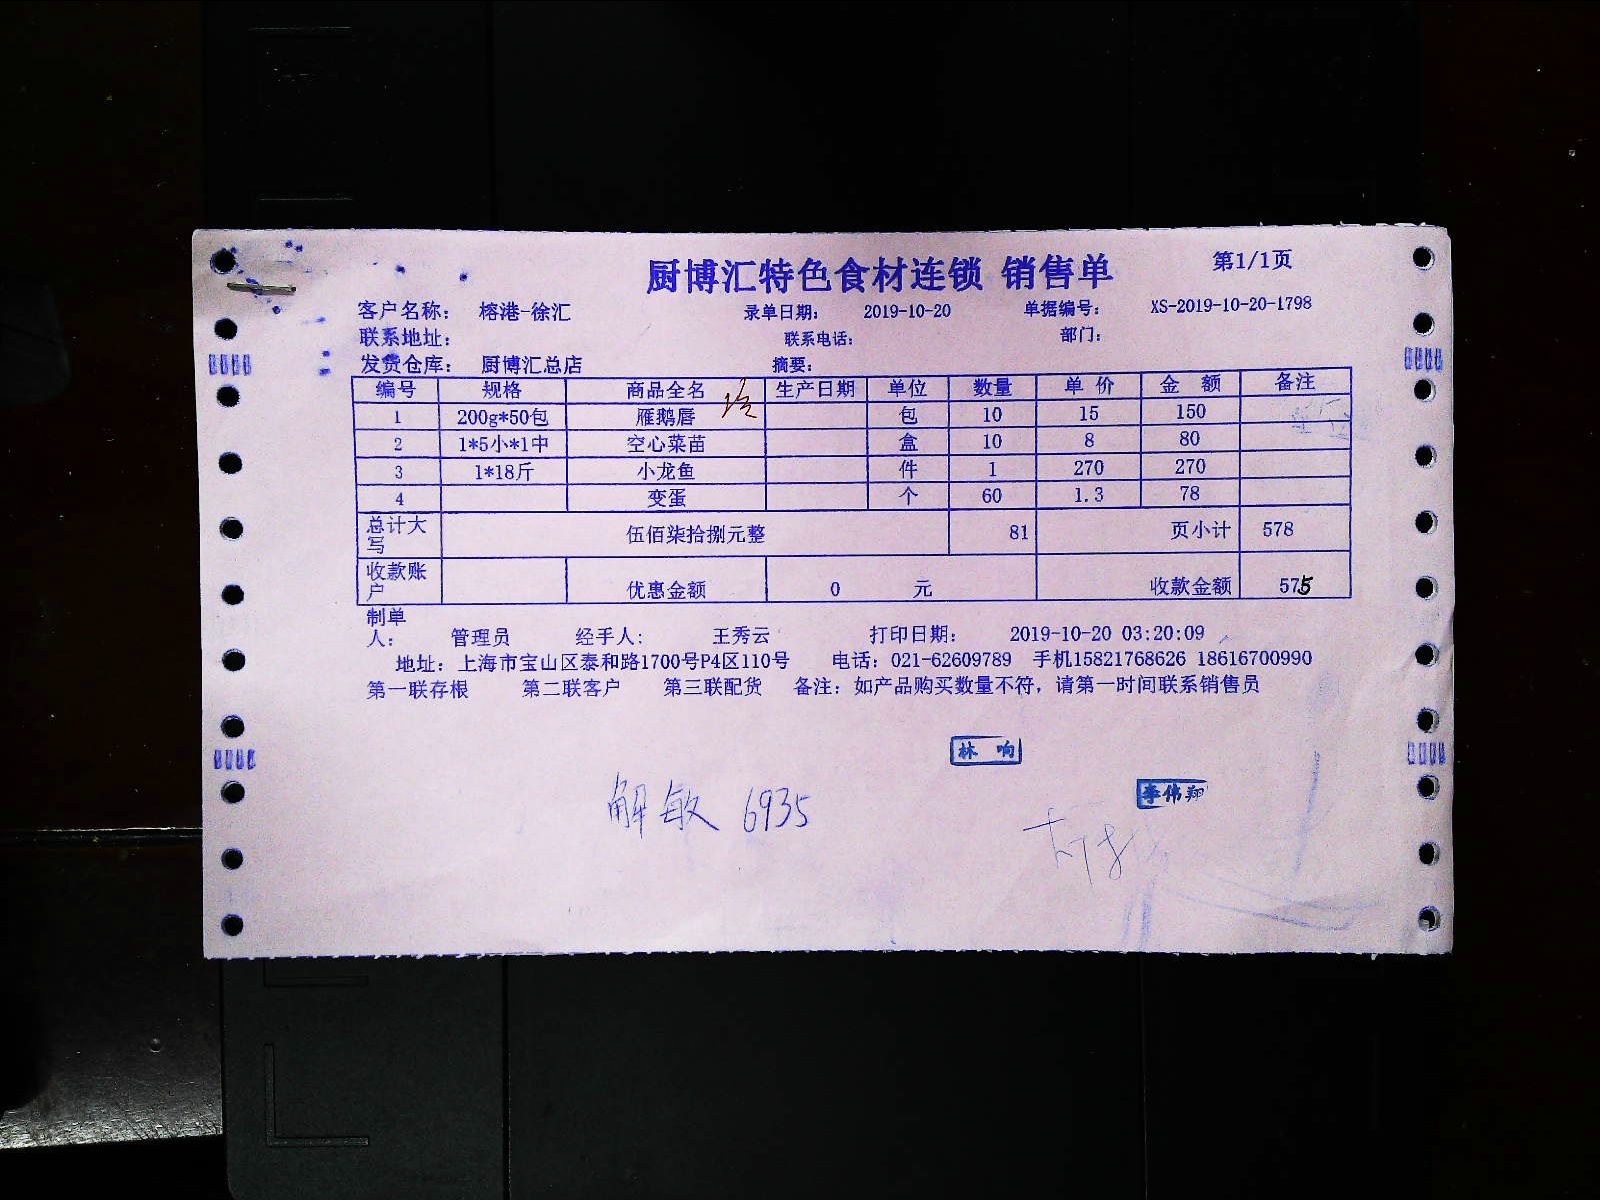 厨博汇特色食材连锁 销售单 第1/1页
客户名称： 榕港-徐汇 录单日期： 2019-10-20 单据编号： XS-2019-10-20-1798
联系地址： 联系电话： 部门：
发货仓库： 厨博汇总店 摘要：
编号 规格 商品全名 生产日期 单位 数量 单 价 金 额 备注
1 200g*50包 雁鹅唇 包 10 15 150
2 1*5小*1中 空心菜苗 盒 10 8 80
3 1*18斤 小龙鱼 件 1 270 270
4 变蛋 个 60 1.3 78
总计大写 伍佰柒拾捌元整 81 页小计 578
收款账户 优惠金额 0 元 收款金额 575
制单人： 管理员 经手人： 王秀云 打印日期： 2019-10-20 03:20:09
地址：上海市宝山区泰和路1700号P4区110号 电话：021-62609789 手机15821768626 18616700990
第一联存根 第二联客户 第三联配货 备注：如产品购买数量不符，请第一时间联系销售员
林 响
李伟翔
解敏 6935